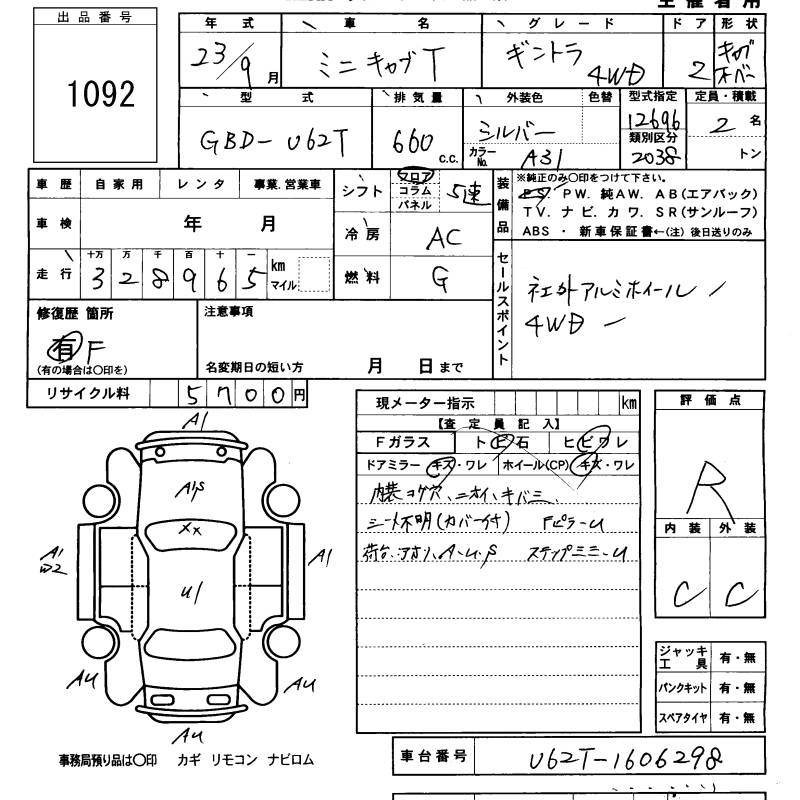 出品番号
1092
年式 車名 グレード ドア 形状
23/9月 ミニキャブT ギントラ 4WD 2 キャブオーバー
型式 排気量 外装色 色替 型式指定 定員・積載
GBD-U62T 660 c.c. シルバー 12696 2 名
カラーNo. A31 類別区分 2038 トン
車歴 自家用 レンタ 事業.営業車
シフト フロア コラム パネル 5速
装備品
※純正のみ〇印をつけて下さい。
PS. PW. 純AW. AB(エアバック)
TV. ナビ. カワ. SR(サンルーフ)
ABS ・ 新車保証書←(注) 後日送りのみ
車検 年 月
冷房 AC
走行 十万 万 千 百 十 一
328965 km マイル
燃料 G
セールスポイント
社外アルミホイール
4WD
修復歴 箇所
有 F
(有の場合は〇印を)
注意事項
名変期日の短い方 月 日まで
リサイクル料 5700円
現メーター指示 km
【査定員記入】
Fガラス トビ石 ヒビワレ
ドアミラー キズ・ワレ ホイール(CP) キズ・ワレ
内装コゲ穴、ニオイ、キバミ、
シート不明(カバー付) Fピラ-U
荷台、アオリ、A-U.S ステップミミ-U
評価点
R
内装 外装
C C
A1
A1S
XX
A1
W2
U1
A1
AU
AU
AU
ジャッキ工具 有・無
パンクキット 有・無
スペアタイヤ 有・無
事務局預り品は〇印 カギ リモコン ナビロム
車台番号 U62T-1606298